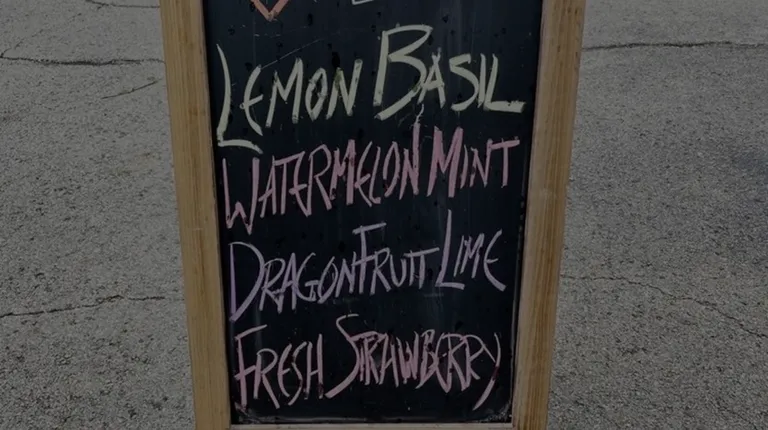 LEMON BASIL
WATERMELON MINT
DRAGONFRUIT LIME
FRESH STRAWBERRY